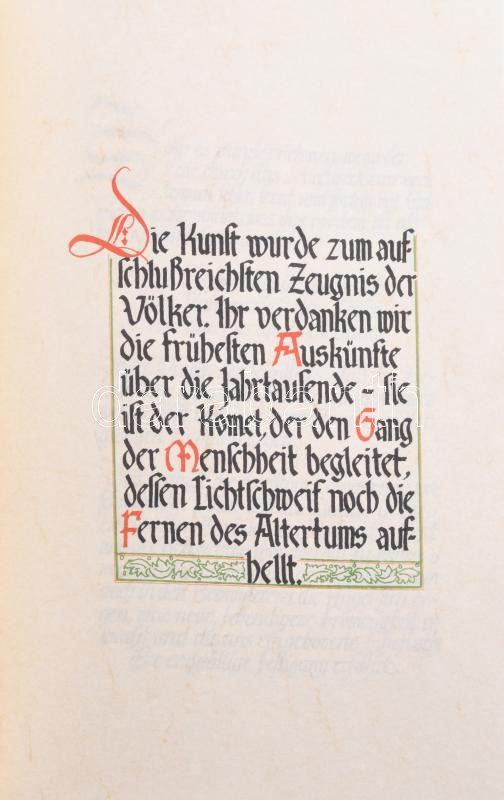 Die Kunst wurde zum auf-
schlußreichsten Zeugnis der
Völker. Ihr verdanken wir
die frühesten Auskünfte
über die Jahrtausende – sie
ist der Komet, der den Gang
der Menschheit begleitet,
dessen Lichtschweif noch die
Fernen des Altertums auf-
hellt.